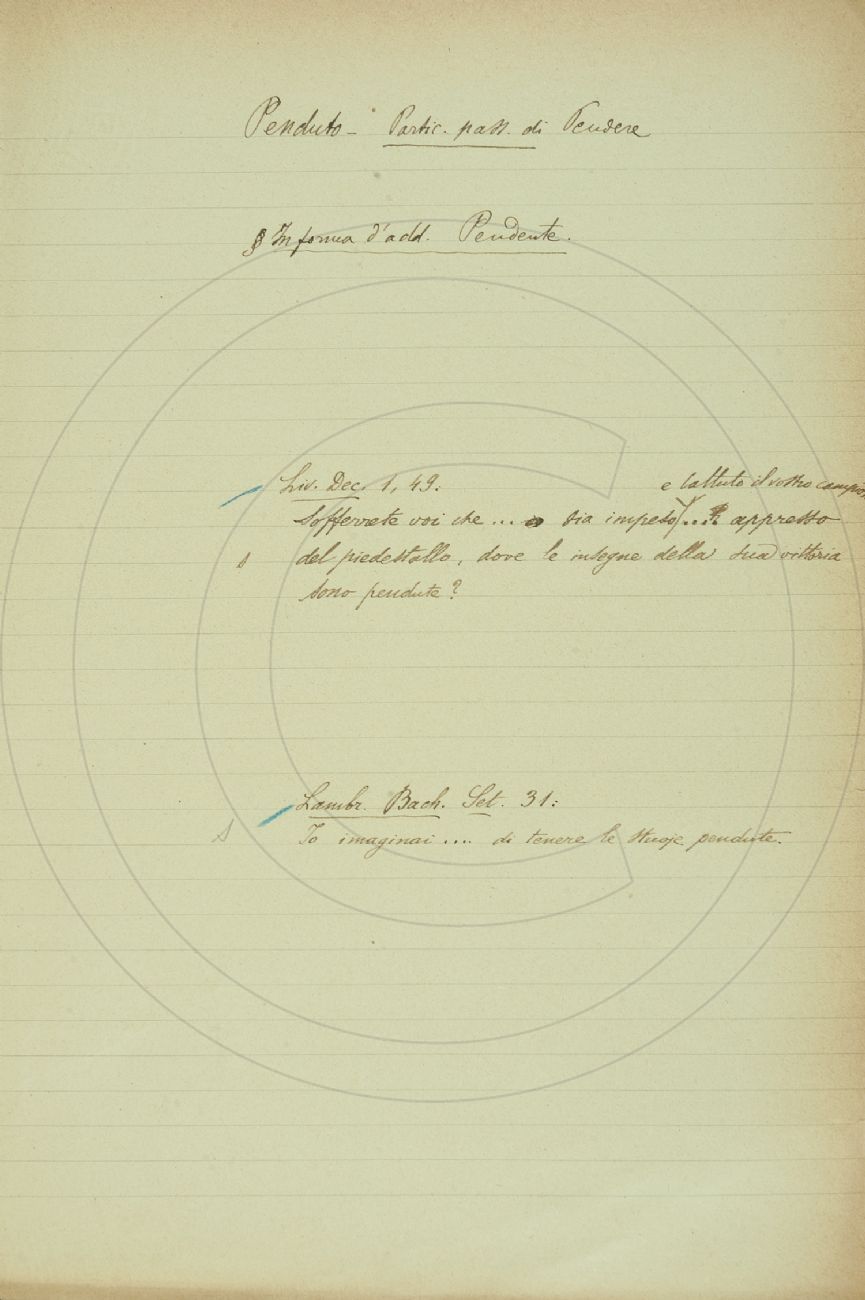 Penduto - Partic. pass. di Pendere
§ In forma d'add. Pendente.
Liv. Dec. 1, 49:
e battuto il vostro campio,
Sofferrete voi che ... sia impeso ... appresso
s del piedestallo, dove le insegne della sua vittoria
sono pendute?
Lambr. Bach. Set. 31:
s Io imaginai .... di tenere le stuoje pendute.